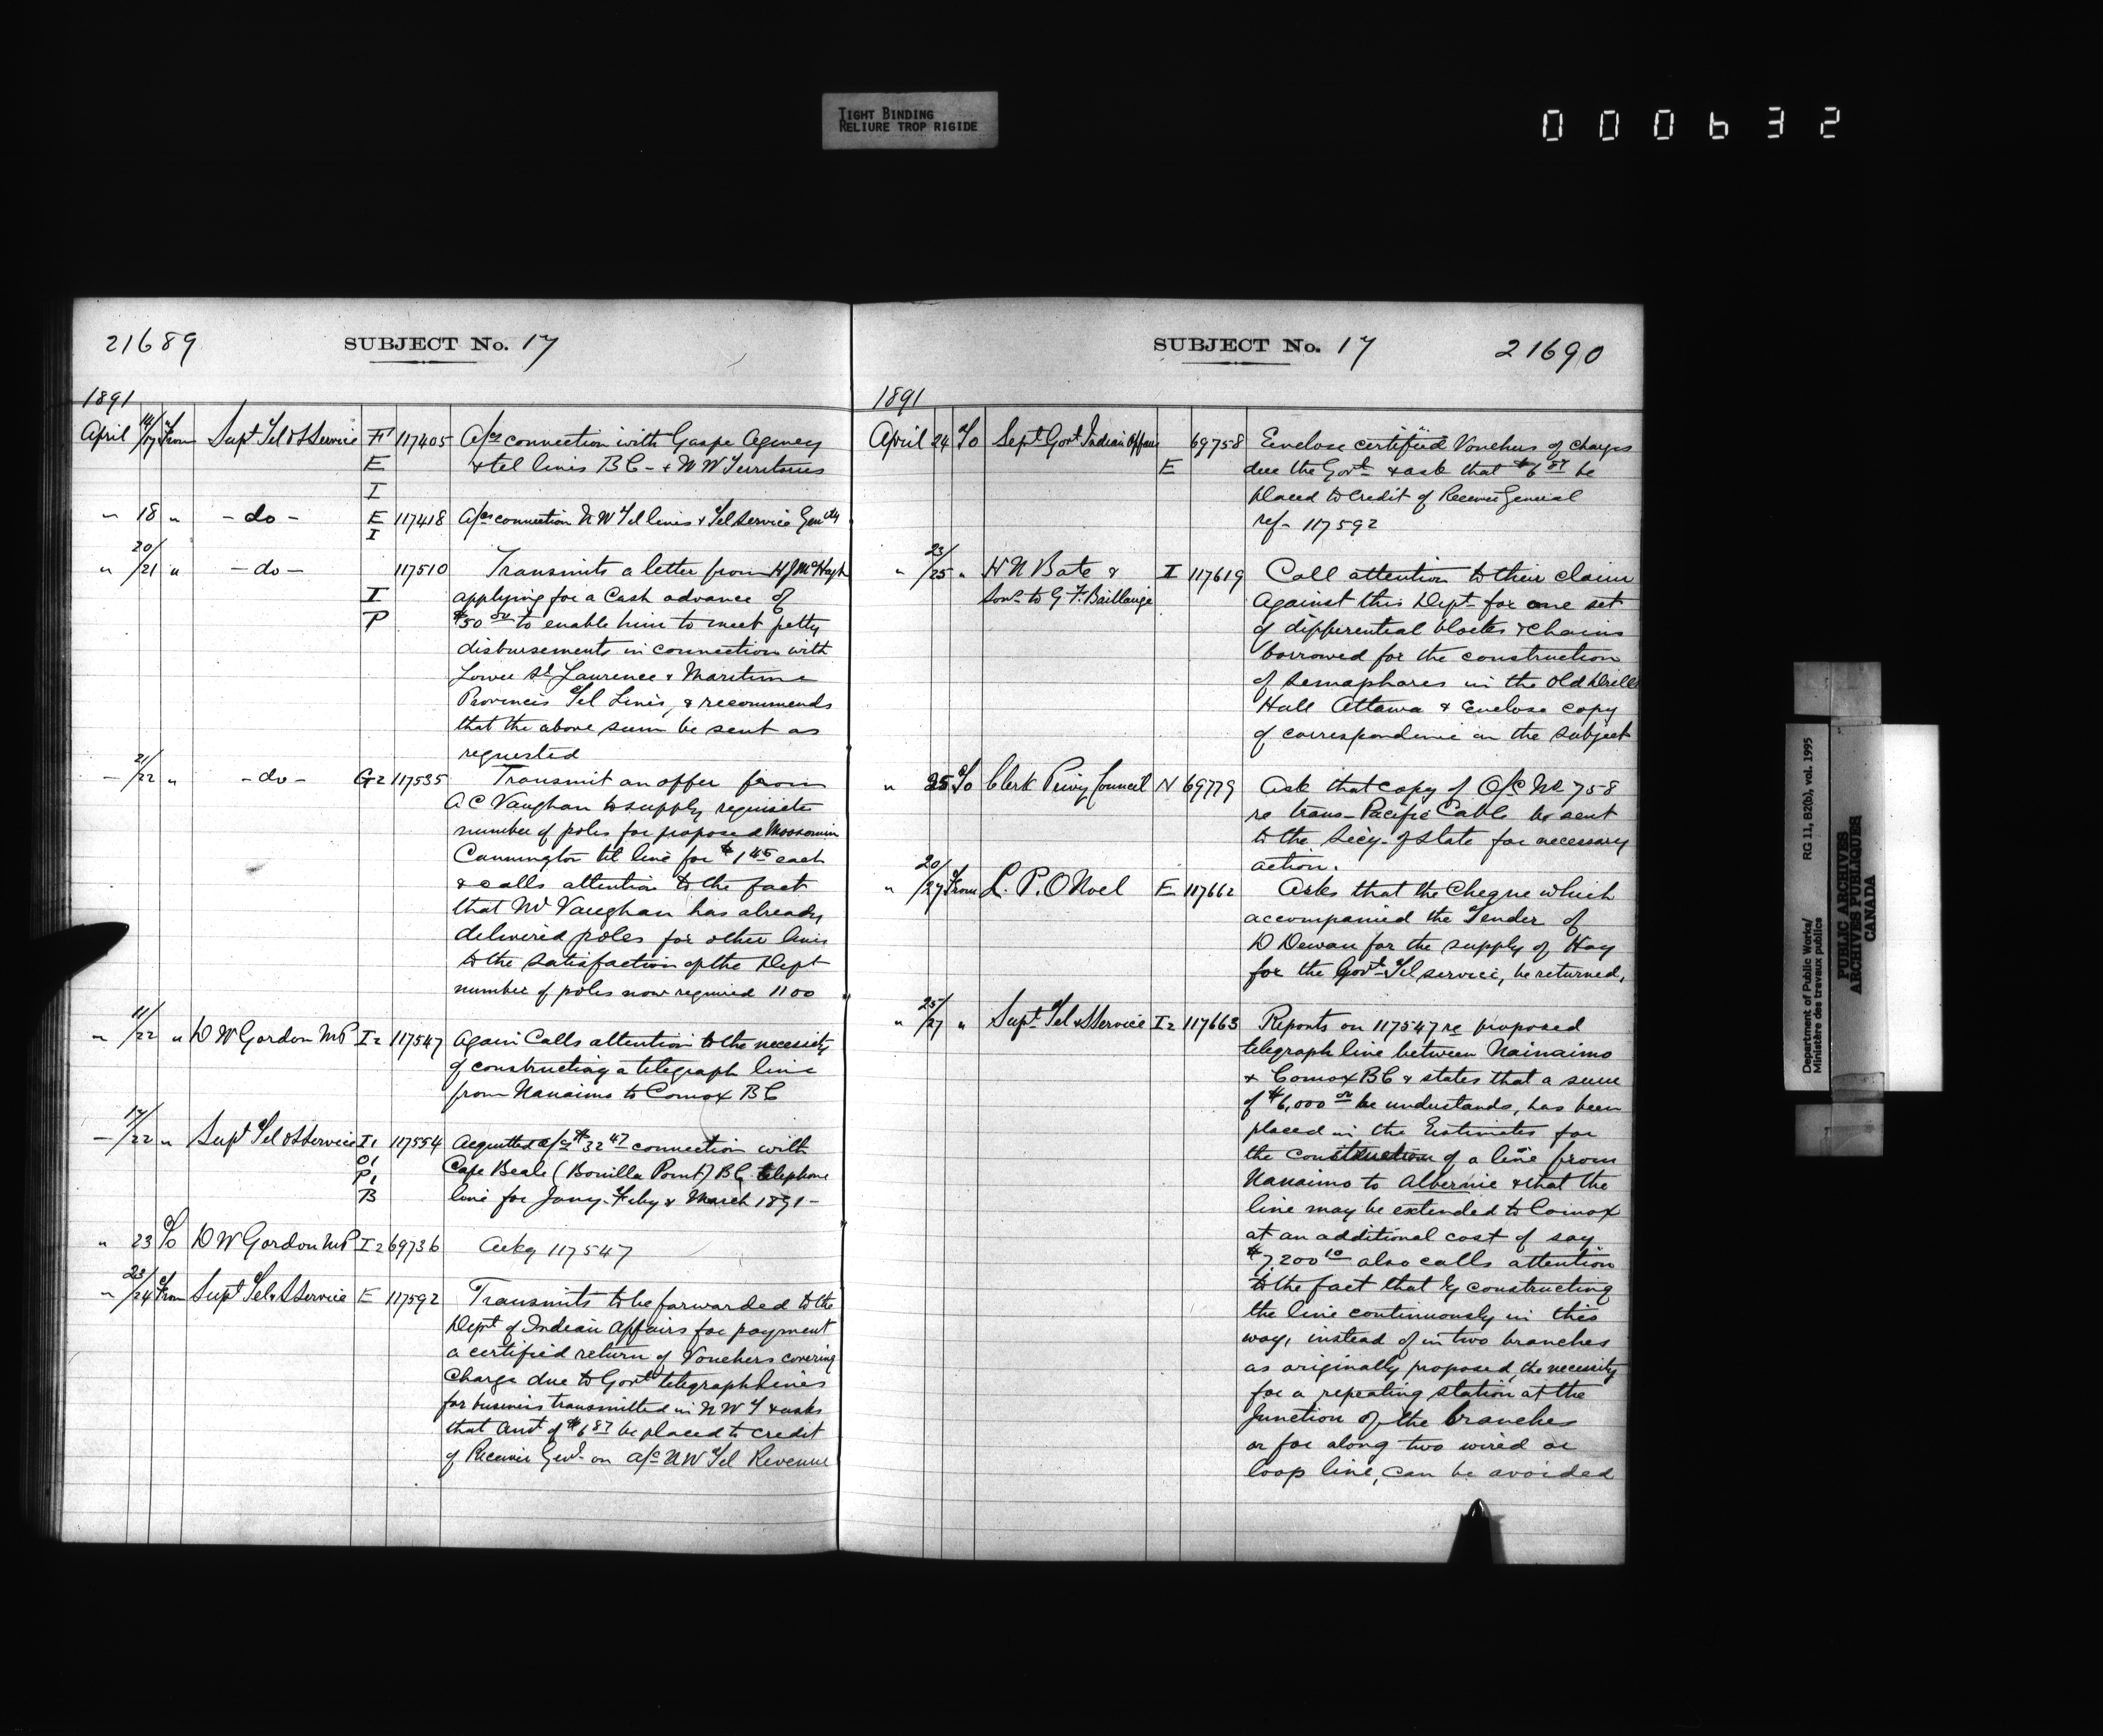 TIGHT BINDING
RELIURE TROP RIGIDE
000632
21689
SUBJECT No. 17
1891
April 14/17 From Supt Tel & S Service F 117405 A/cs connection with Gaspe Agency
E & tel lines B C - & N W Territories
I
" 18 " - do - E 117418 A/cs connection N W Tel lines & Tel Service Genlly
I
" 20/21 " - do - 117510 Transmits a letter from H J McHugh
I applying for a Cash advance of
P $50 00 to enable him to meet petty
disbursements in connection with
Lower St Laurence & Maritime
Provinces Tel Lines, & recommends
that the above sum be sent as
requested
- 21/22 " - do - G2 117535 Transmit an offer from
A C Vaughan to supply requisite
number of poles for proposed Moosomin
Cannington tel line for $1 45 each
& calls attention to the fact
that Mr Vaughan has already
delivered poles for other lines
to the satisfaction of the Dept
number of poles now required 1100
" 11/22 " D W Gordon MP I2 117547 Again Calls attention to the necessity
of constructing a telegraph line
from Nanaimo to Comox B C
- 17/22 " Supt Tel & S Service I1 117554 Acquitted a/cs $32 47 connection with
O1 Cape Beale (Bonilla Point) B C telephone
P1 line for Jany. Feby & March 1891 -
B
" 23 To D W Gordon MP I2 69736 Ackg 117547
" 23/24 From Supt Tel & S Service E 117592 Transmits to be forwarded to the
Dept of Indian Affairs for payment
a certified return of Vouchers covering
Charge due to Govt telegraph Lines
for business transmitted in N W T & asks
that amt of $6 87 be placed to credit
of Receiver Genl. on a/c N W Tel Revenue
SUBJECT No. 17
21690
1891
April 24 To Supt Govt Indian Affairs 69758 Enclose certified Vouchers of charges
E due the Govt & ask that $6 87 be
placed to credit of Receiver General
ref - 117592
" 23/25 " H N Bate & I 117619 Call attention to their claim
Sons to G. F. Baillairge Against this Dept for one set
of differential blocks & chains
borrowed for the construction
of Semaphores in the Old Drill
Hall Ottawa & Enclose copy
of correspondence on the subject
" 25 To Clerk Privy Council N 69779 Ask that copy of O/C No 758
re trans-Pacific Cable be sent
to the Secy. of State for necessary
action.
" 20/27 From L. P. O Noel E 117662 Asks that the Cheque which
accompanied the Tender of
D Dewan for the supply of Hay
for the Govt Tel service, be returned,
" 25/27 " Supt Tel & S Service I2 117663 Reports on 117547 re proposed
telegraph line between Nainaimo
& Comox B C & states that a sum
of $6,000 00 he understands, has been
placed in the Estimates for
the construction of a line from
Nanaimo to Albernie & that the
line may be extended to Comox
at an additional cost of say
$7,200 10 also calls attention
to the fact that by constructing
the line continuously in this
way, instead of in two branches
as originally proposed, the necessity
for a repeating station at the
Junction of the branches
or for along two wired or
loop line, can be avoided
Department of Public Works/
Ministère des travaux publics
RG 11, B2(b), vol. 1995
PUBLIC ARCHIVES
ARCHIVES PUBLIQUES
CANADA